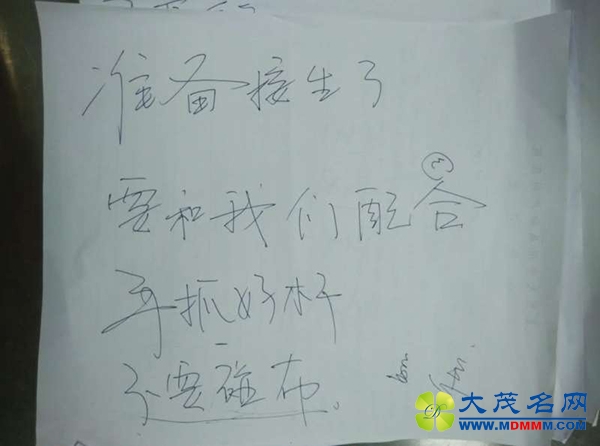 准备接生了
③
要和我们配合
手抓好杆
不要碰布。
6cm
大茂名网
WWW.MDMMM.COM